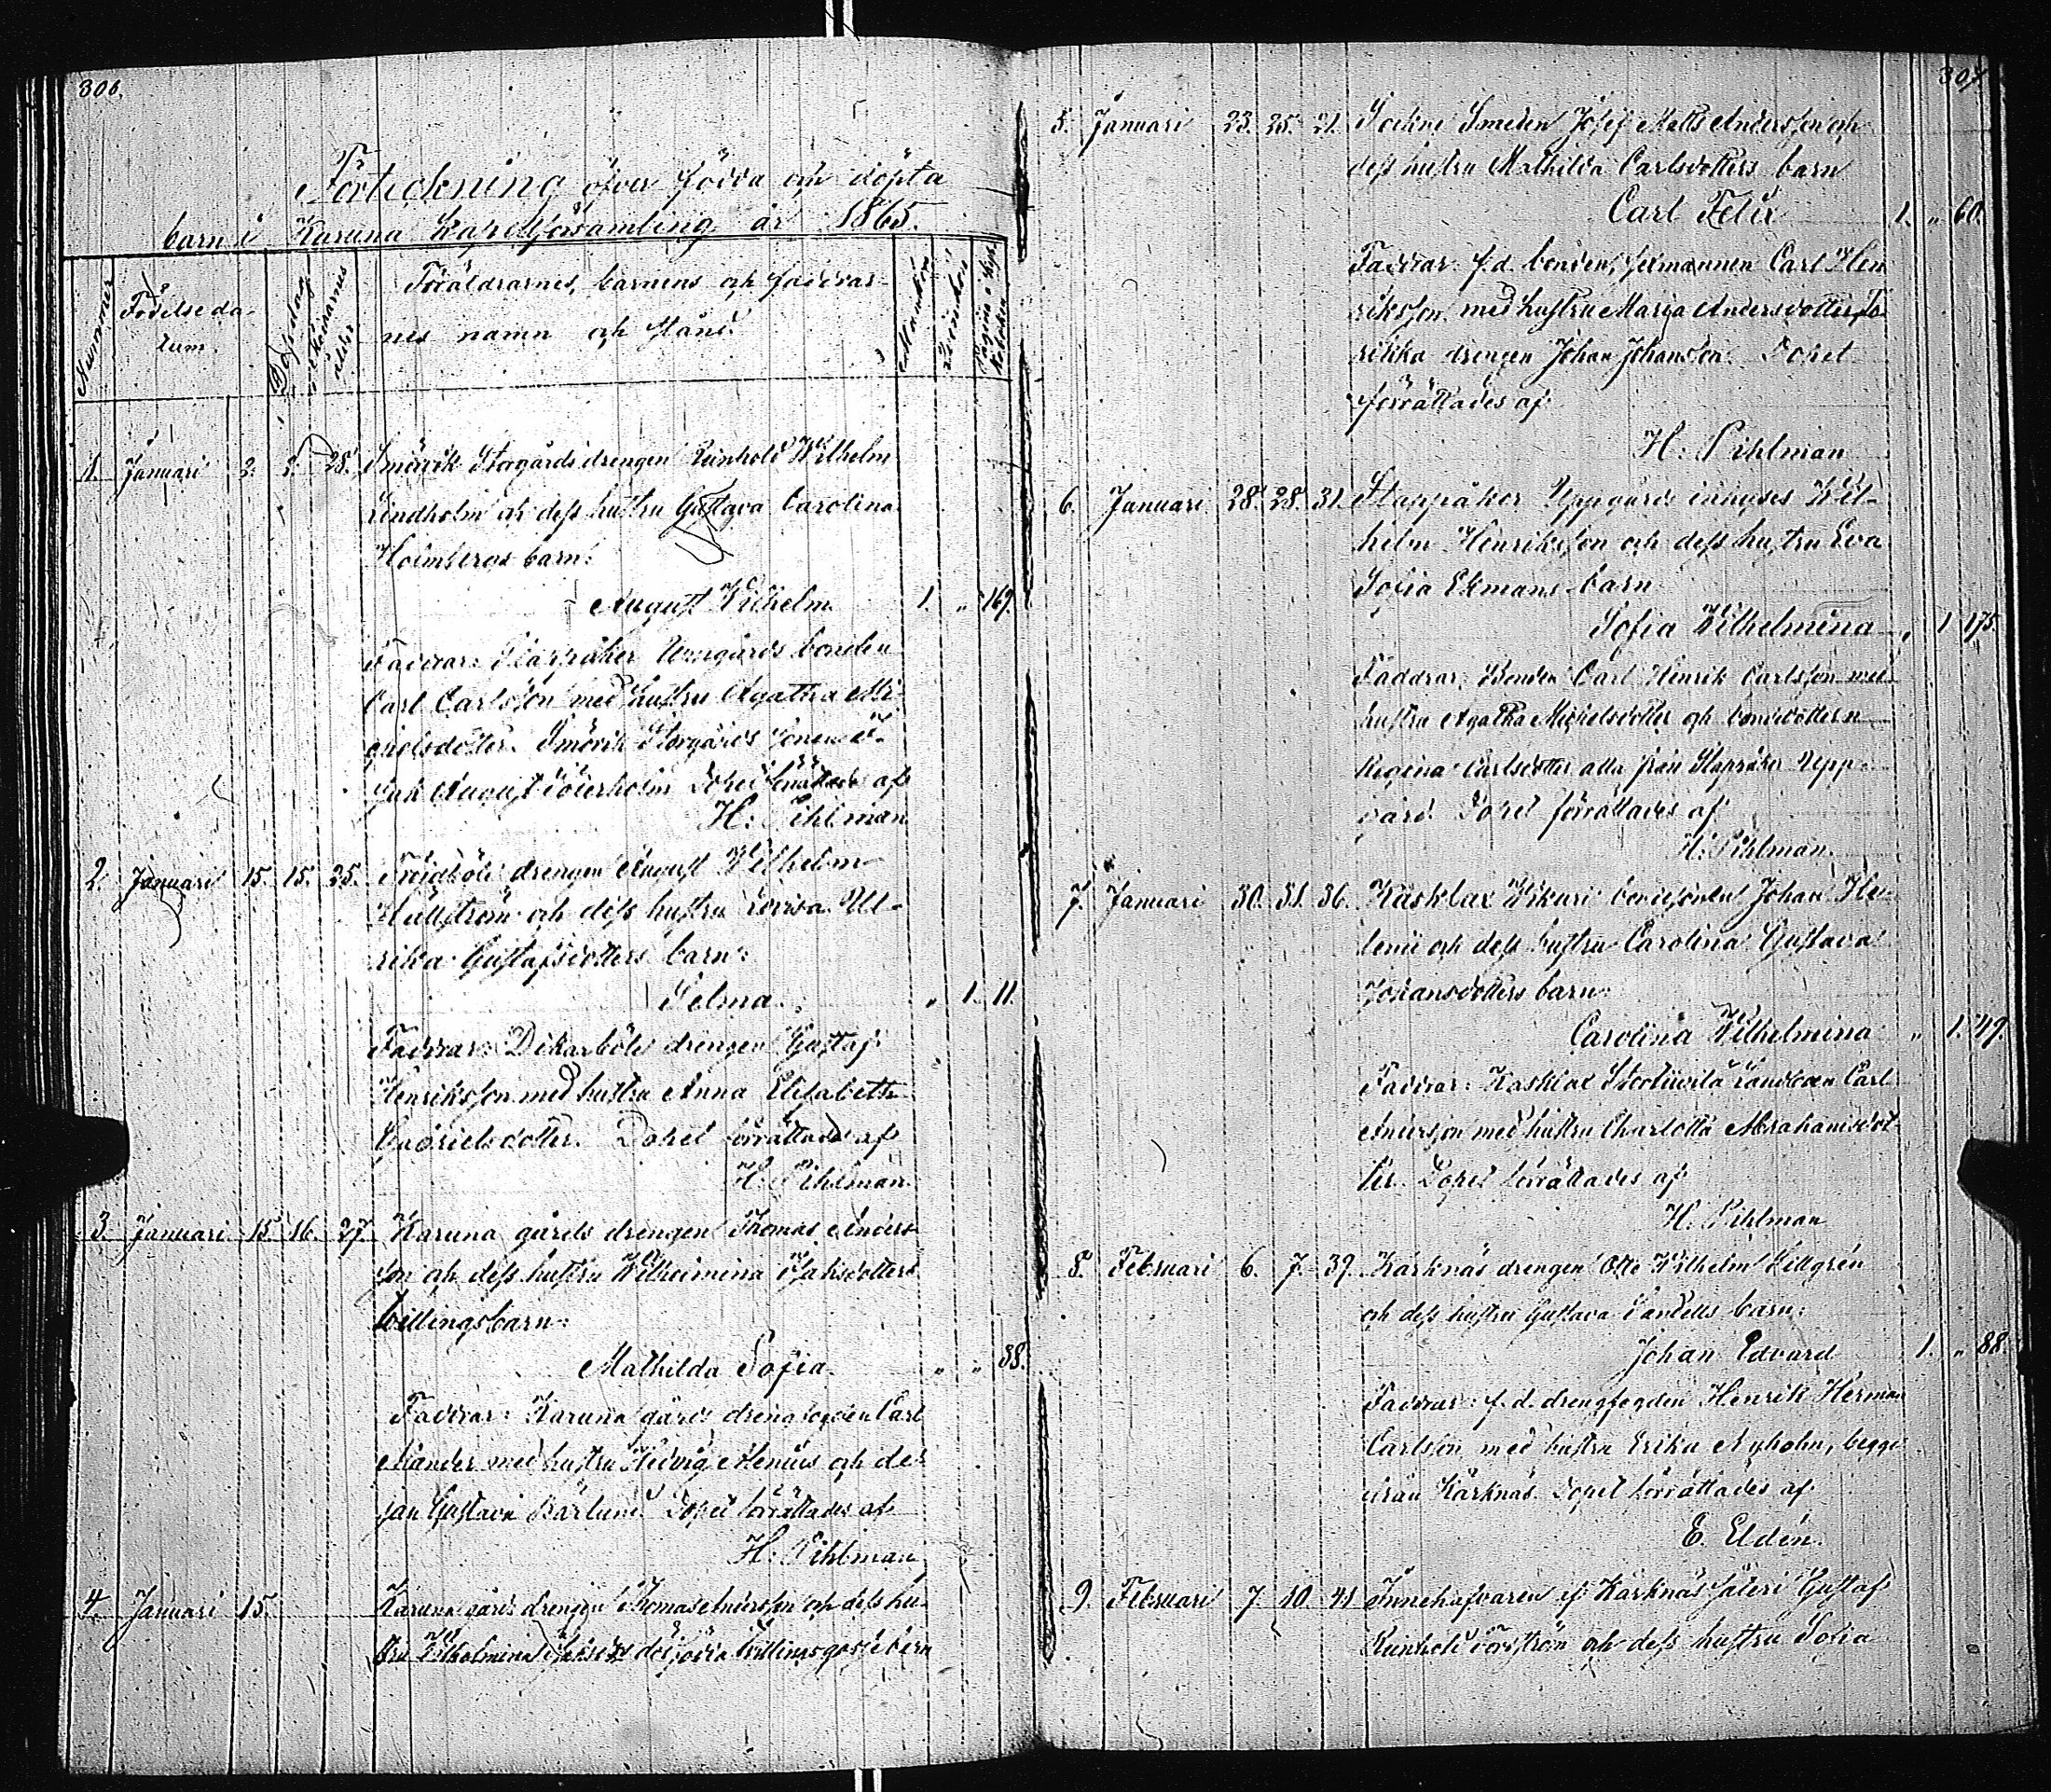 306.
Förteckning öfver födda och döpta
barn i Karuna Kapellförsamling år 1865.
Nummer
Födelseda-
tum.
Döpdag
Moderns
ålder
Föräldrarnes, barnens och faddrar-
nes namn och stånd.
Mankön
Qvinkön
Pagina i Kyrk-
boken
1. Januari 2. 2. 28. Smörvik Storgårds drengen Reinhold Wilhelm
Lindholm och dess hustru Gustava Carolina
Holmbergs barn:
August Wilhelm 1. „ 169.
Faddrar: Stappåker Uppgårds bonden
Carl Carlsson med hustru Agatha Mi-
chelsdotter. Smörvik Storgårds sonen
August Söderholm Dopet förrättades af
H: Pihlman
2. Januari 15. 15. 25. drengen August Wilhelm
Hellström och dess hustru Lovisa Ul-
rika Gustafsdotters barn:
Selma. „ 1. 11.
Faddrar: Dikarböle drengen Gustaf
Henriksson med hustru Anna Elisabeth
Gabrielsdotter. Dopet förrättades af
H: Pihlman
3. Januari 15. 16. 27. Karuna gårds drengen Thomas Anders-
son och dess hustru Wilhelmina Isaksdotters
tvillingsbarn:
Mathilda Sofia. „ „ 38.
Faddrar: Karuna gårds drengfogden Carl
med hustru Hedvig Alenius och de-
jan Gustava Kärlund Dopet förrättades af
H: Pihlman
4. Januari 15. Karuna gårds drengen Thomas Andersson och dess hu-
stru Wilhelmina Isaksd: dödfödda tvillings gossebarn
307.
5. Januari 23. 25. 21. Sockne Smeden Josef Matts Andersson och
dess hustru Mathilda Carlsdotters barn
Carl Felix 1. „ 60.
Faddrar: f.d. bonden, Carl Hen-
riksson med hustru Maria Andersdotter,
rikka drengen Johan Johansson. Dopet
förrättades af
H: Pihlman
6. Januari 28. 28. 31. Stappåker Uppgårds inhyses Wil-
helm Henriksson och dess hustru Eva
Sofia Ekmans barn
Sofia Wilhelmina „ 1 175.
Faddrar: Bonden Carl Henrik Carlsson med
hustru Agatha Michelsdotter och bondedottern
Regina Carlsdotter alla från Stappåker Upp-
gård. Dopet förrättades af
H: Pihlman.
7. Januari 30. 31. 36. Kasklax bondesonen Johan He-
lenii och dess hustru Carolina Gustava
Johansdotters barn:
Carolina Wilhelmina „ 1. 49.
Faddrar: Kasklax landbon Carl
Andersson med hustru Charlotta Abrahamsdot-
ter. Dopet förrättades af
H. Pihlman
8. Februari 6. 7. 39. Kärknäs drengen Otto Wilhelm Killgrén
och dess hustru Gustava Sandells barn:
Johan Edvard 1. „ 88.
Faddrar: f.d. drengfogden Henrik Herman
Carlsson med hustru Erika Nyholm, begge
ifrån Kärknäs. Dopet förrättades af
E. Eldén.
9. Februari 7. 10. 41 Innehafvaren af Kärknäs säteri Gustaf
Reinhold och dess hustru Sofia